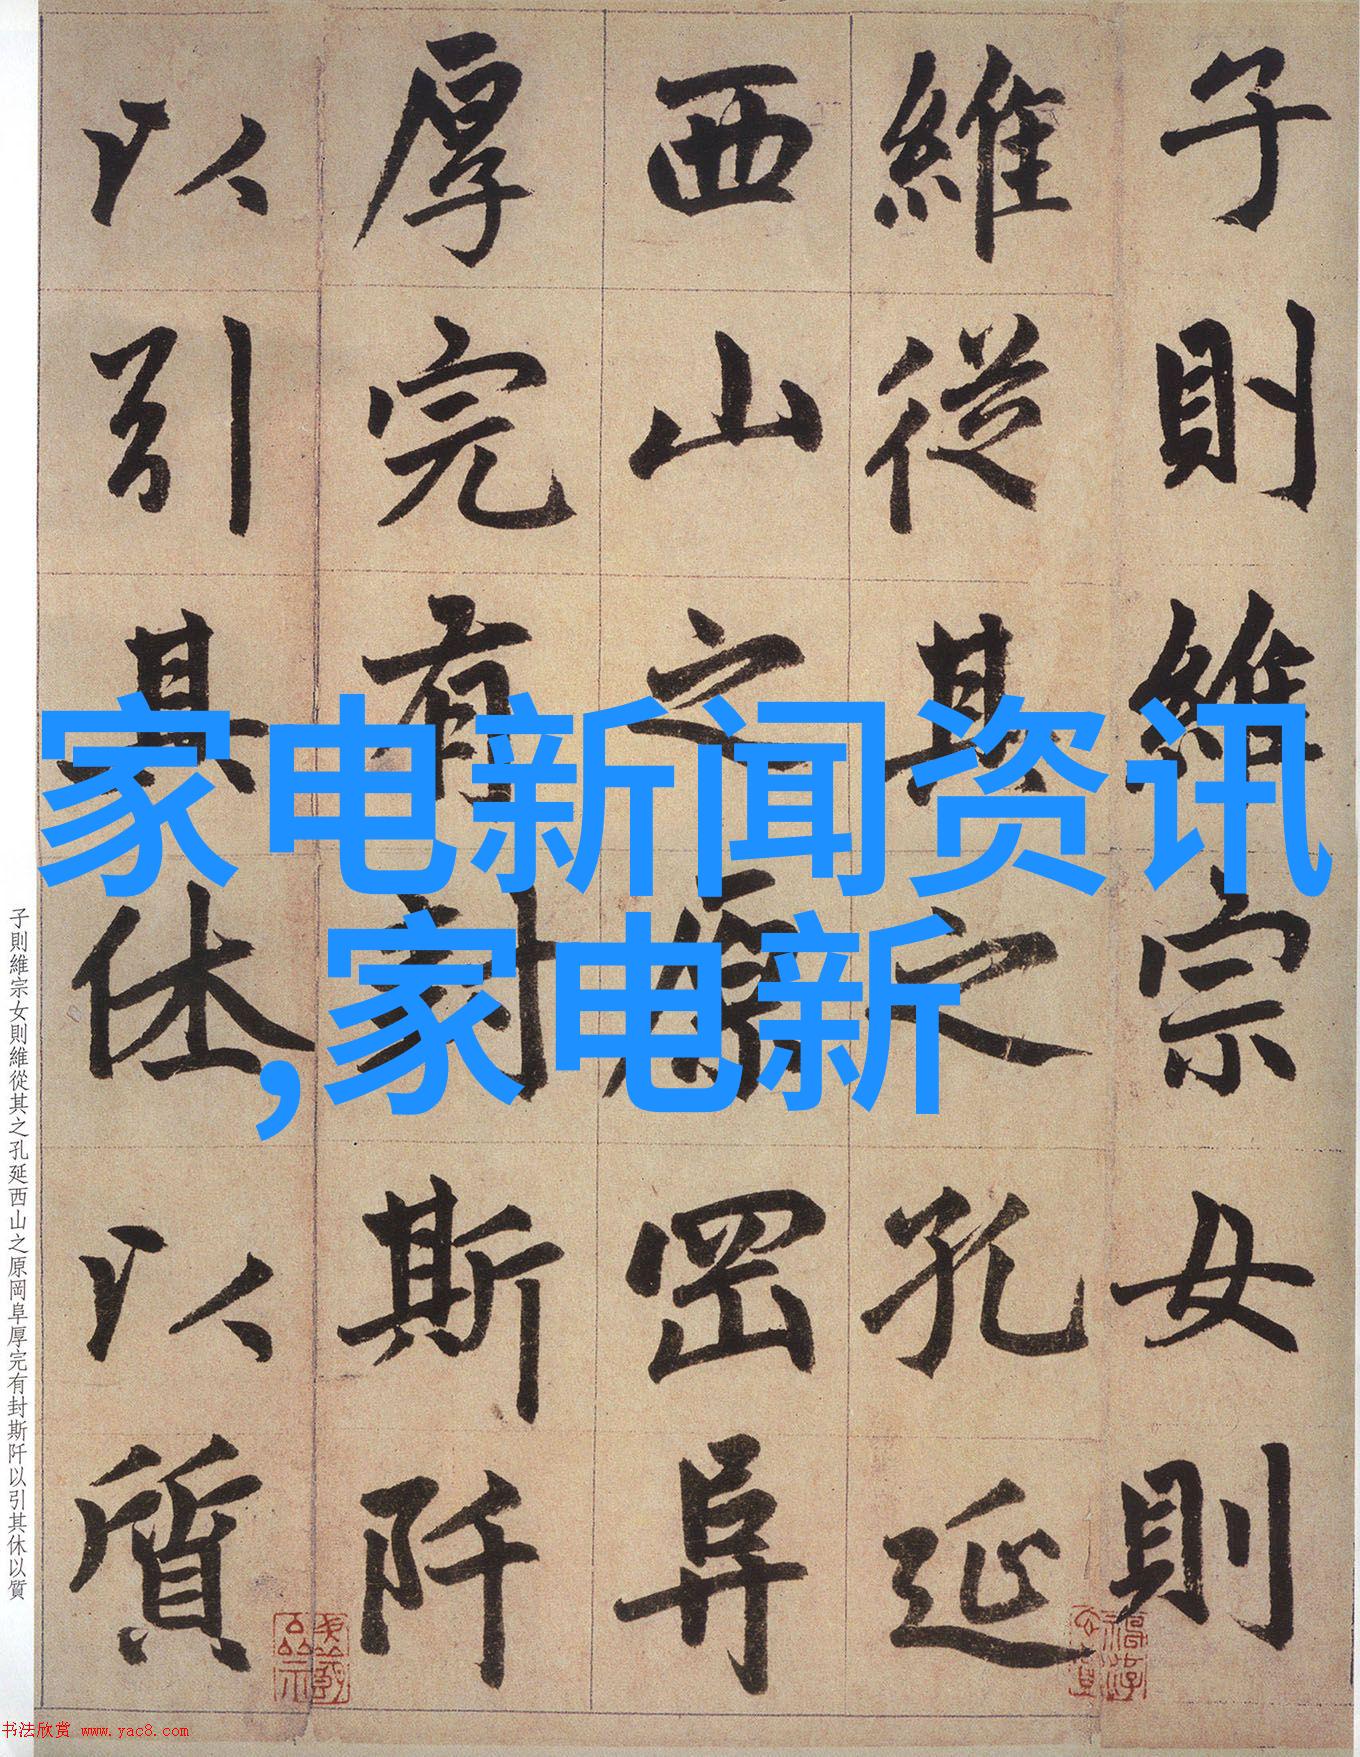 子則維宗女則
維從其之孔延
西山之原岡阜
厚完有封斯阡
以引其休以質
家电新闻资讯
,家电新
子則維宗女則維從其之孔延西山之原岡阜厚完有封斯阡以引其休以質
书法欣赏 www.yac8.com